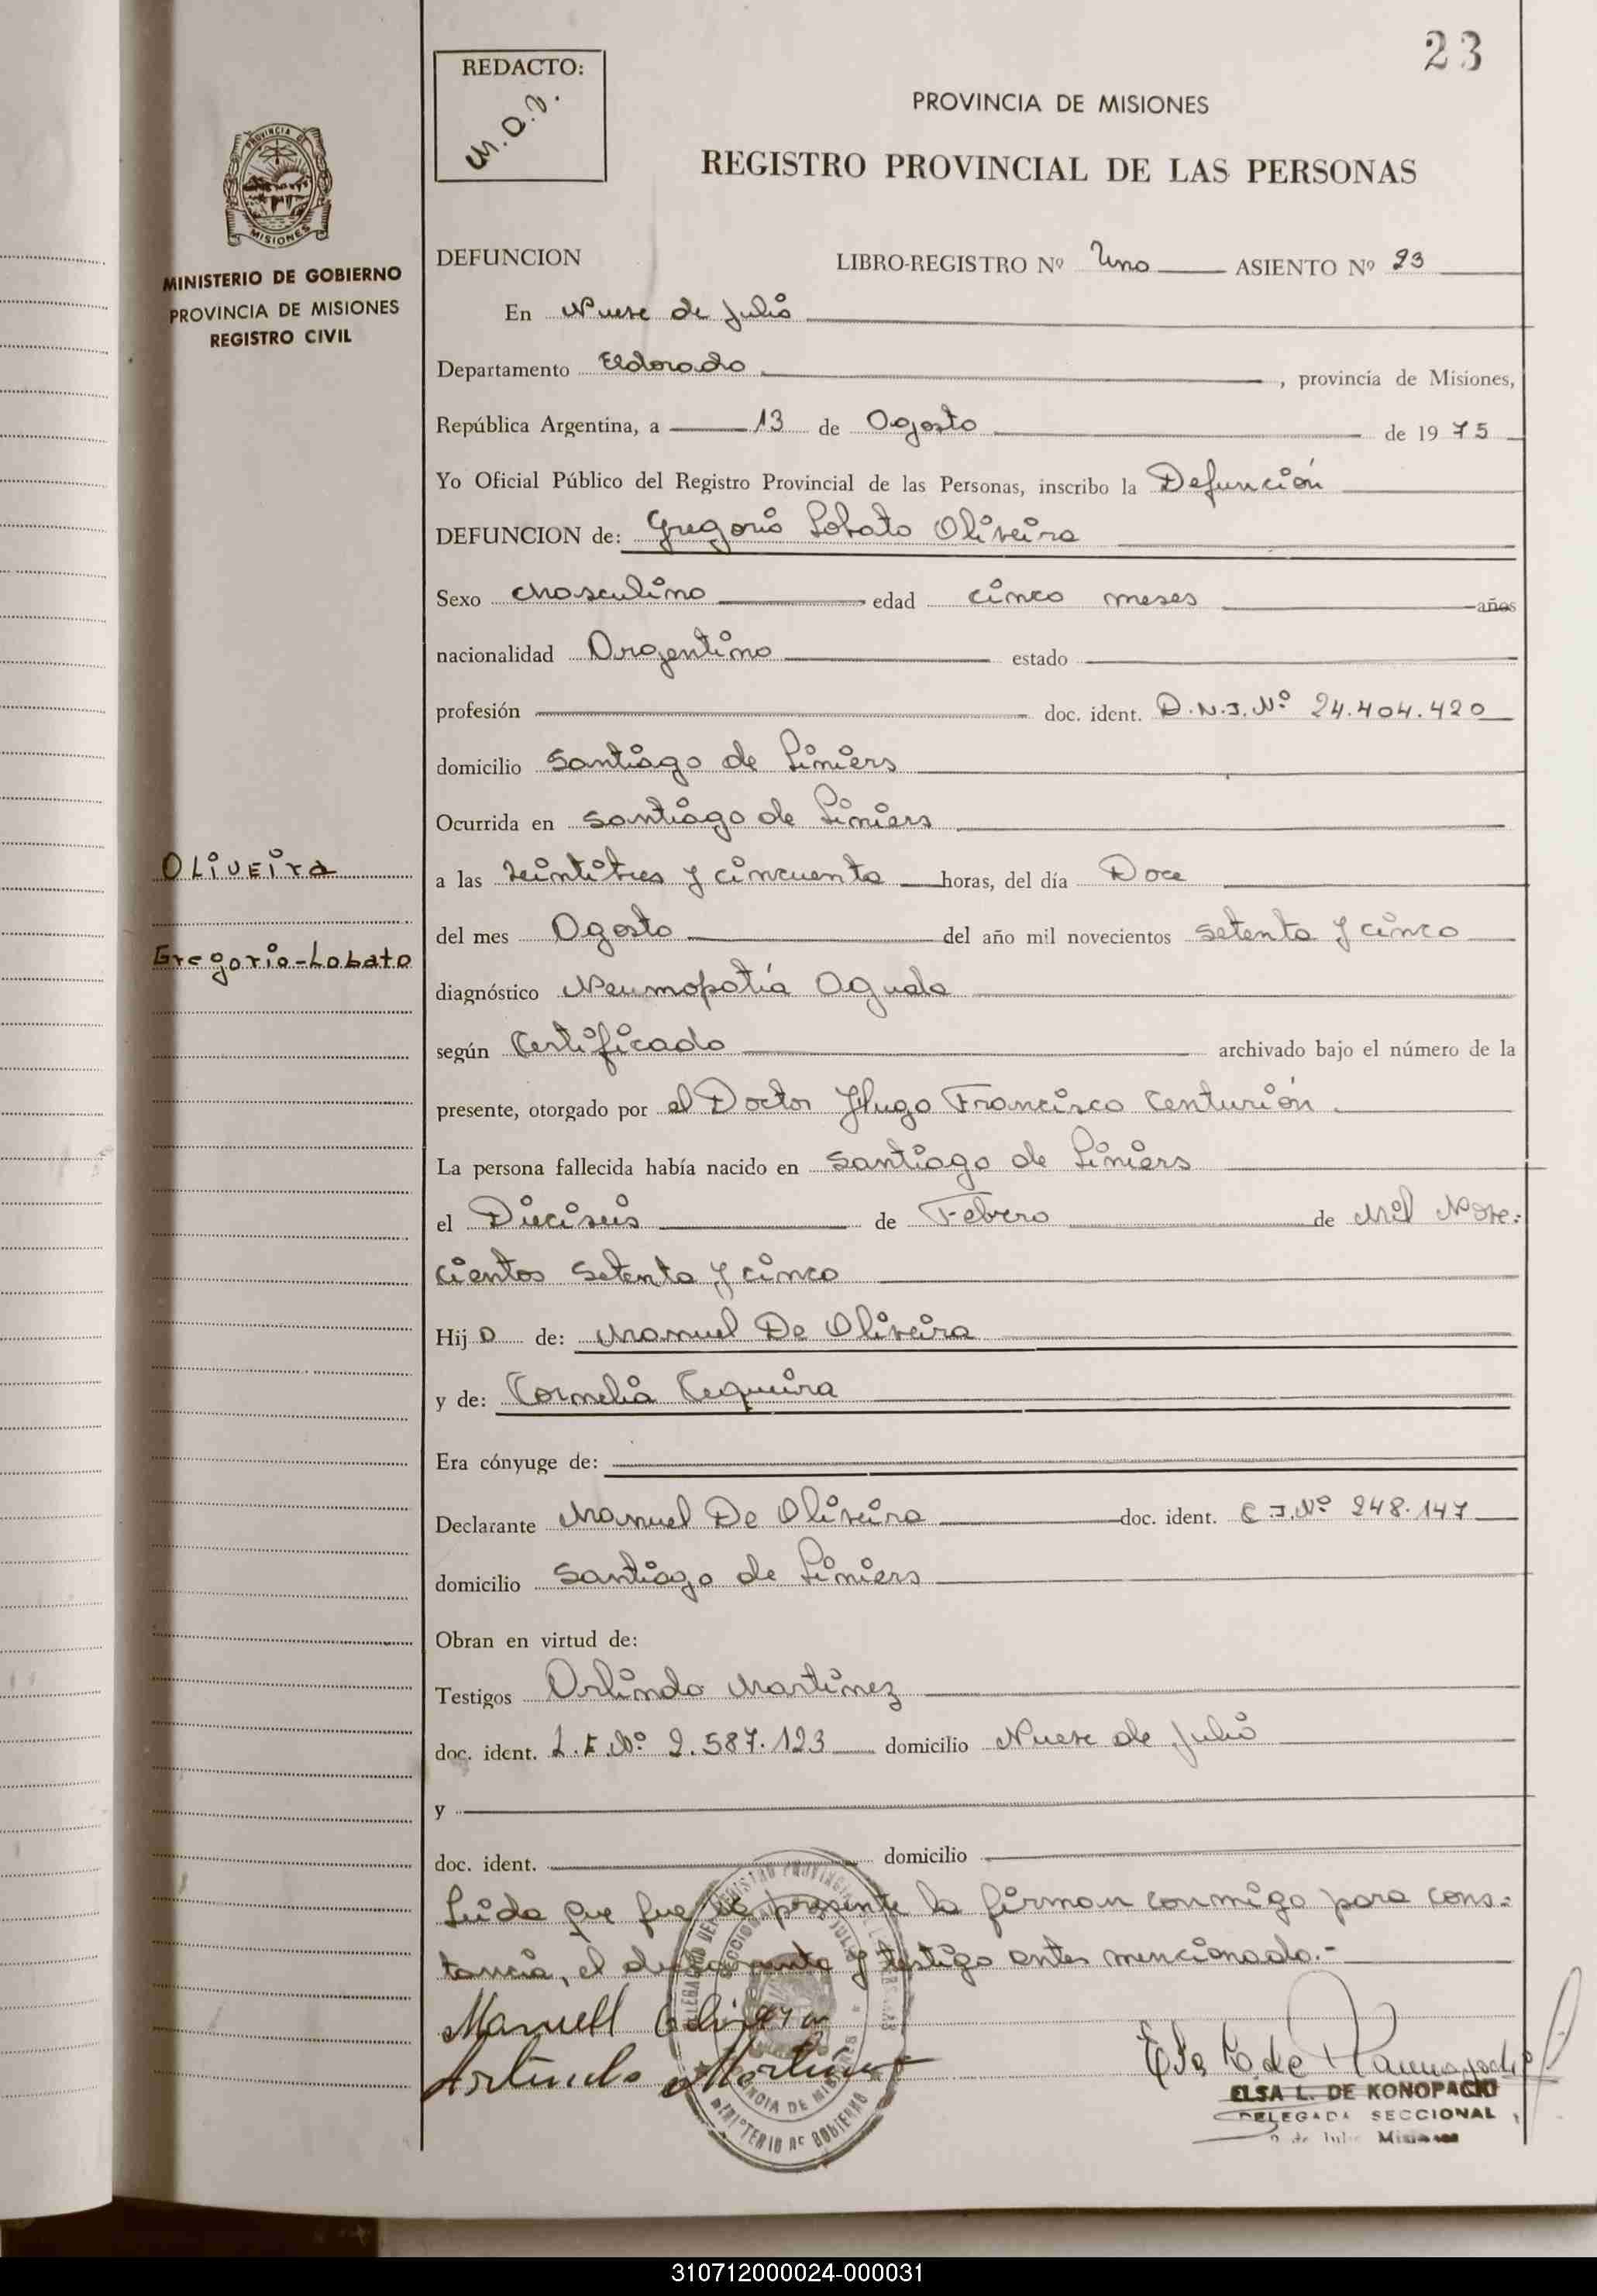 23
REDACTO:
PROVINCIA DE MISIONES
REGISTRO PROVINCIAL DE LAS PERSONAS
PROVINCIA DE
MISIONES
MINISTERIO DE GOBIERNO
PROVINCIA DE MISIONES
REGISTRO CIVIL
DEFUNCION LIBRO-REGISTRO Nº Uno ASIENTO Nº 23
En Nueve de Julio
Departamento Eldorado, provincia de Misiones,
República Argentina, a 13 de Agosto de 1975
Yo Oficial Público del Registro Provincial de las Personas, inscribo la Defunción
DEFUNCION de: Gregorio Lobato Oliveira
Sexo Masculino edad cinco meses años
nacionalidad Argentino estado
profesión doc. ident. D.N.I. Nº 24.404.420
domicilio Santiago de Liniers
Ocurrida en Santiago de Liniers
OLiVEira
a las veintitres y cincuenta horas, del día Doce
del mes Agosto del año mil novecientos setenta y cinco
Gregorio-Lobato
diagnóstico Neumopatía Aguda
según Certificado archivado bajo el número de la
presente, otorgado por el Doctor Hugo Francisco Centurión.
La persona fallecida había nacido en Santiago de Liniers
el Dieciseis de Febrero de Mil Nove:
cientos setenta y cinco
Hijo de: Manuel De Oliveira
y de: Cornelia Cequeira
Era cónyuge de:
Declarante Manuel De Oliveira doc. ident. C.I. Nº 248.147
domicilio Santiago de Liniers
Obran en virtud de:
Testigos Orlindo Martinez
doc. ident. L.E. Nº 2.587.123 domicilio Nueve de Julio
y
doc. ident. domicilio
Leida que fue la presente la firman conmigo para cons:
tancia, el declarante y testigo antes mencionado.-
Manuell
ELSA L. DE KONOPACKI
DELEGADA SECCIONAL
9 de Julio Misiones
MINISTERIO DE GOBIERNO
310712000024-000031